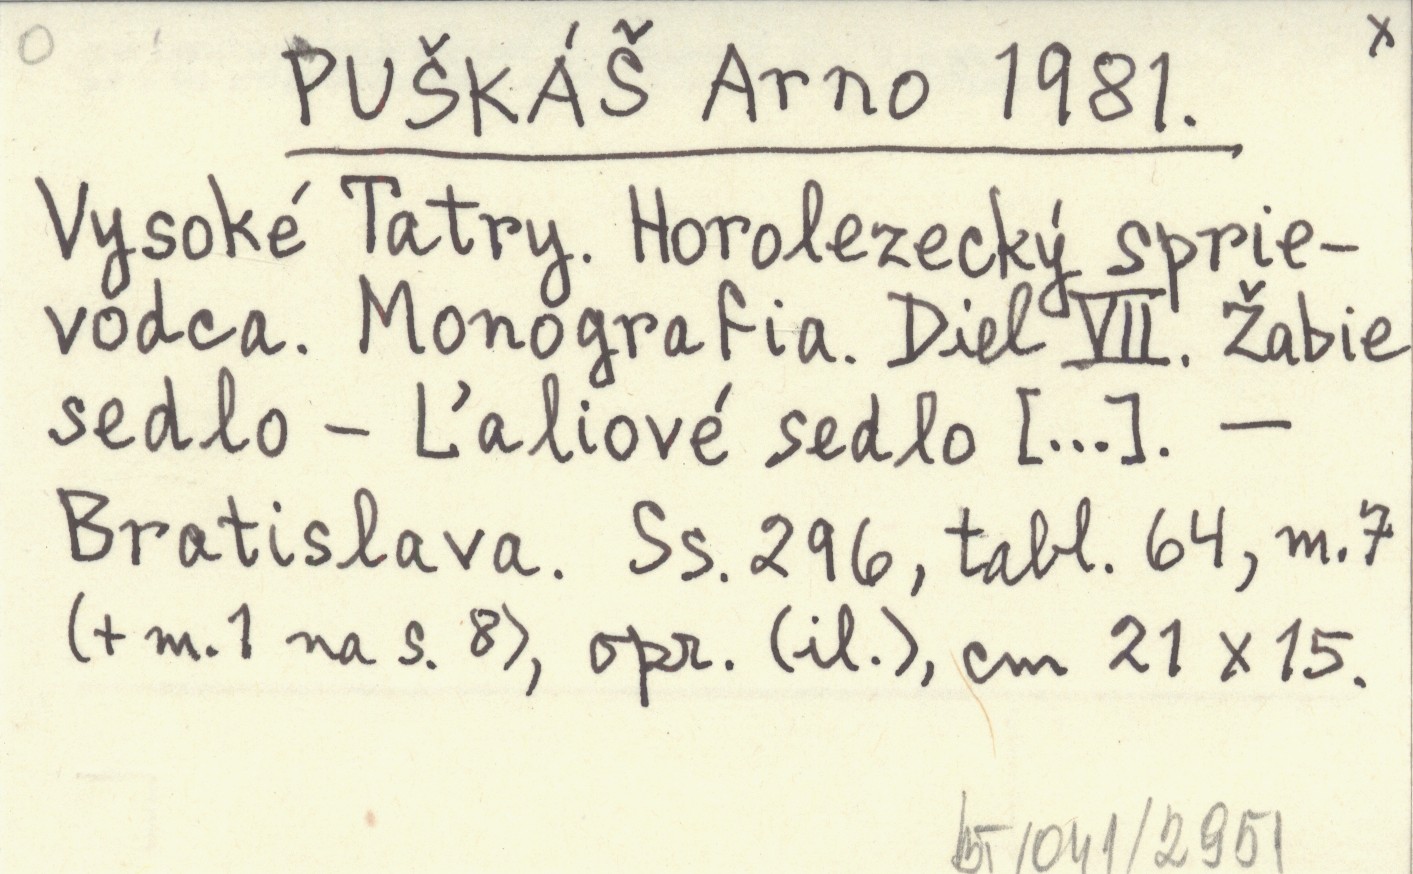 O x
PUŠKÁŠ Arno 1981.
Vysoké Tatry. Horolezecký sprie-
vodca. Monografia. Diel VII. Žabie
sedlo – Ľaliové sedlo [...]. —
Bratislava. Ss. 296, tabl. 64, m. 7
(+ m. 1 na s. 8), opr. (il.), cm 21 x 15.
/041/2951